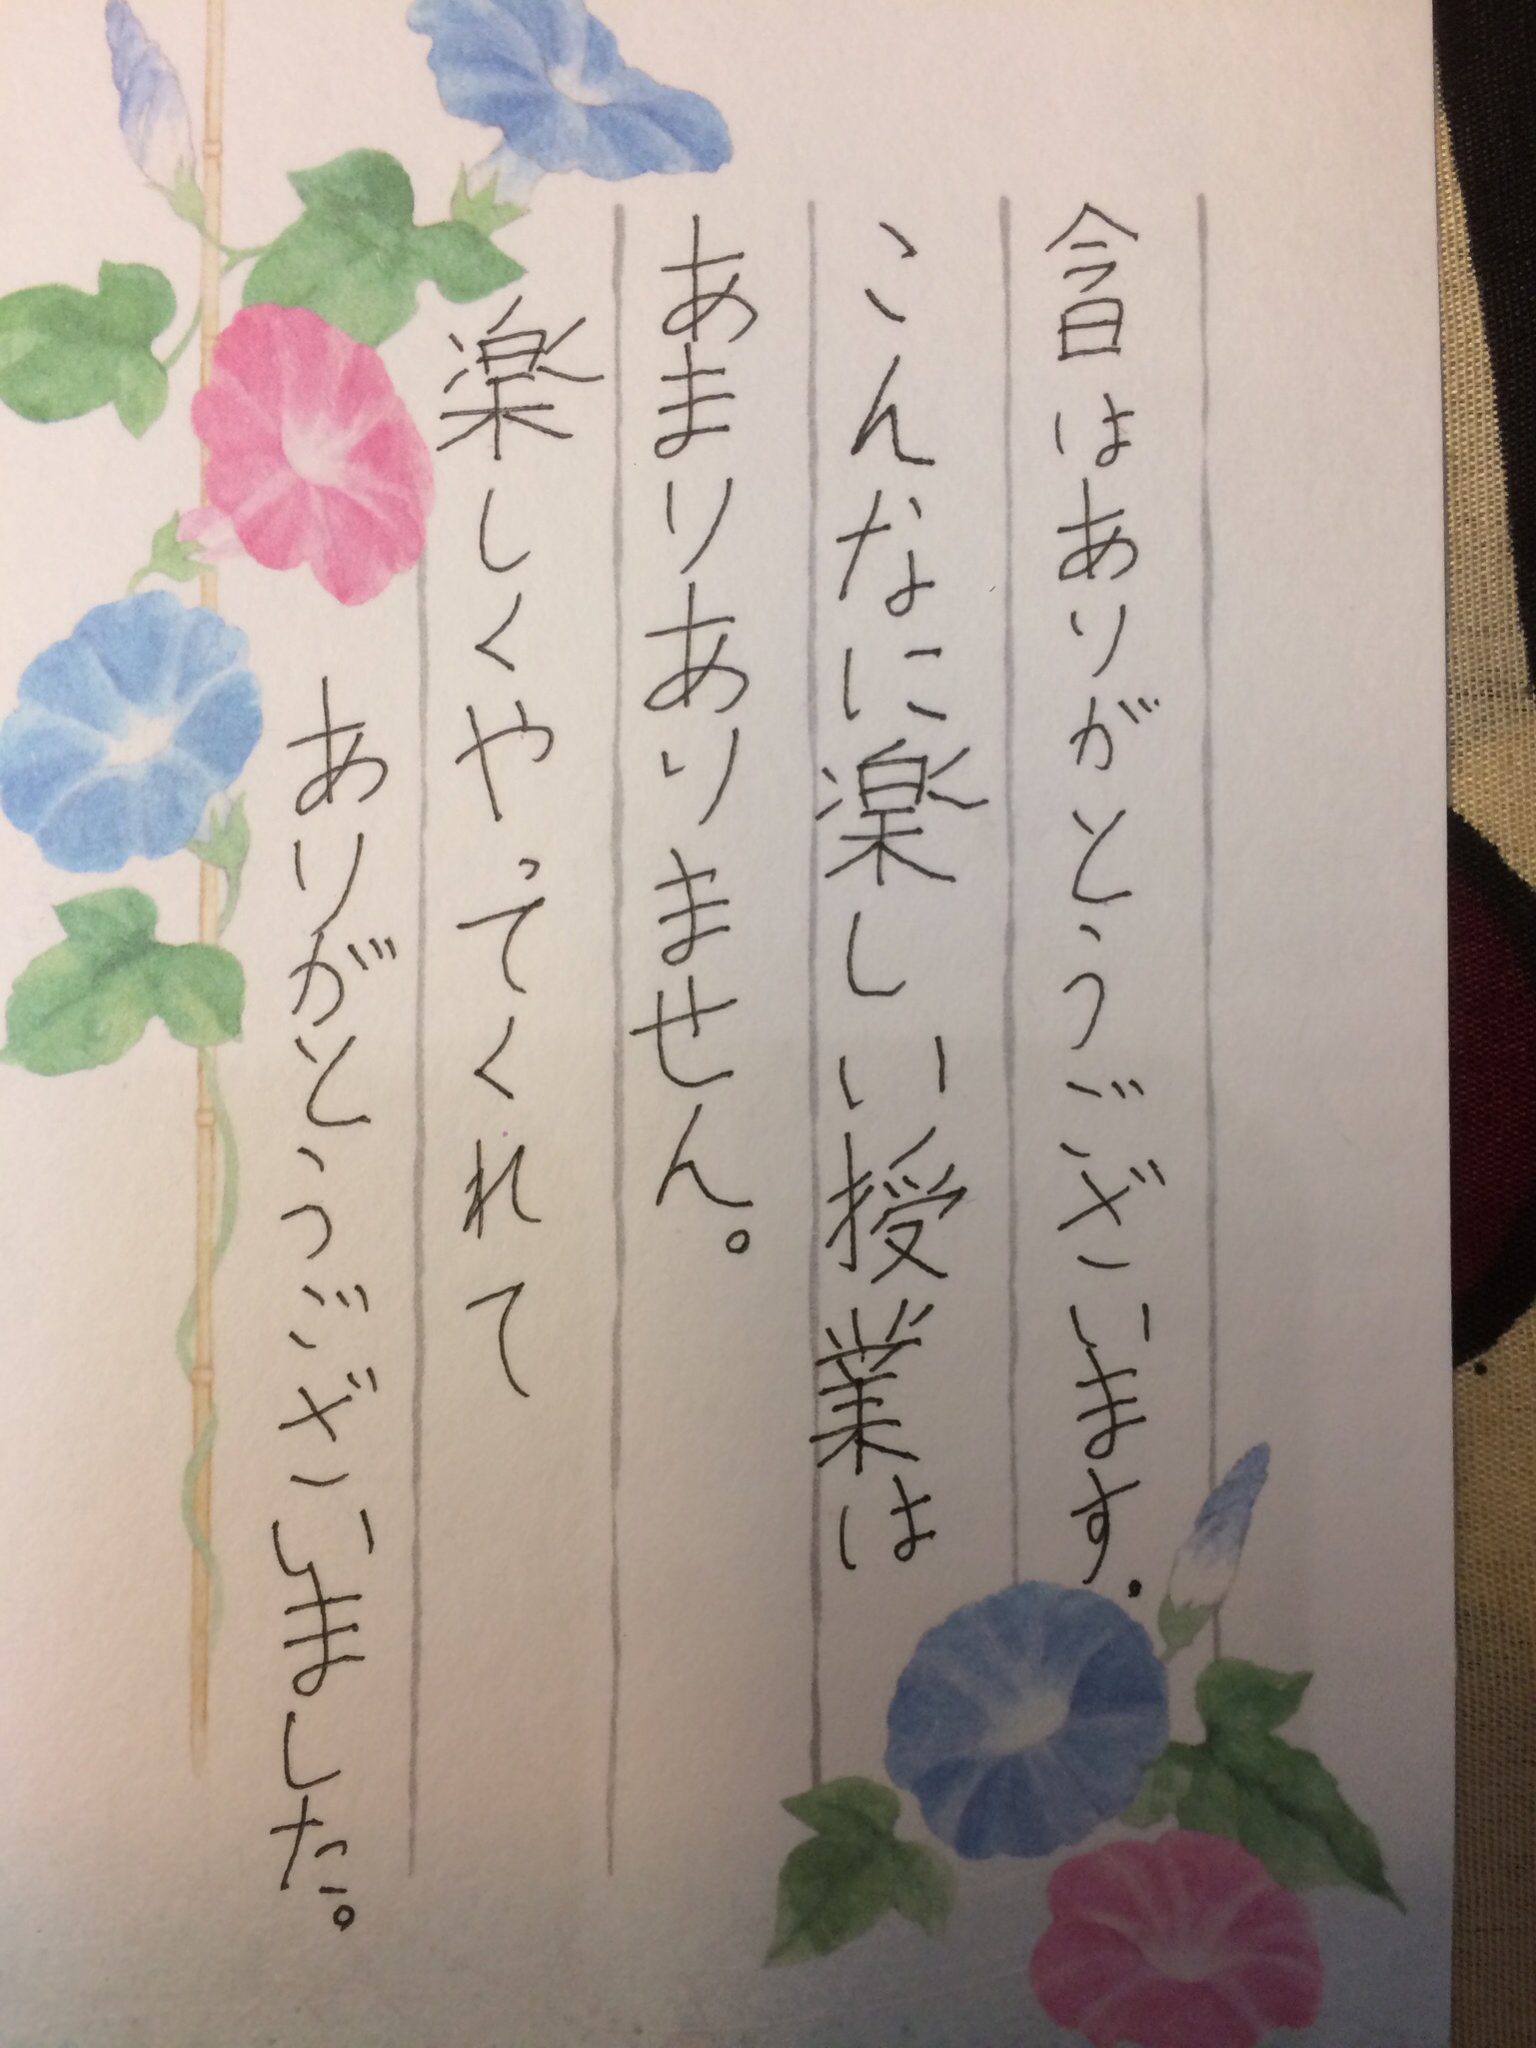 今日はありがとうございます。
こんなに楽しい授業は
あまりありません。
楽しくやってくれて
ありがとうございました。